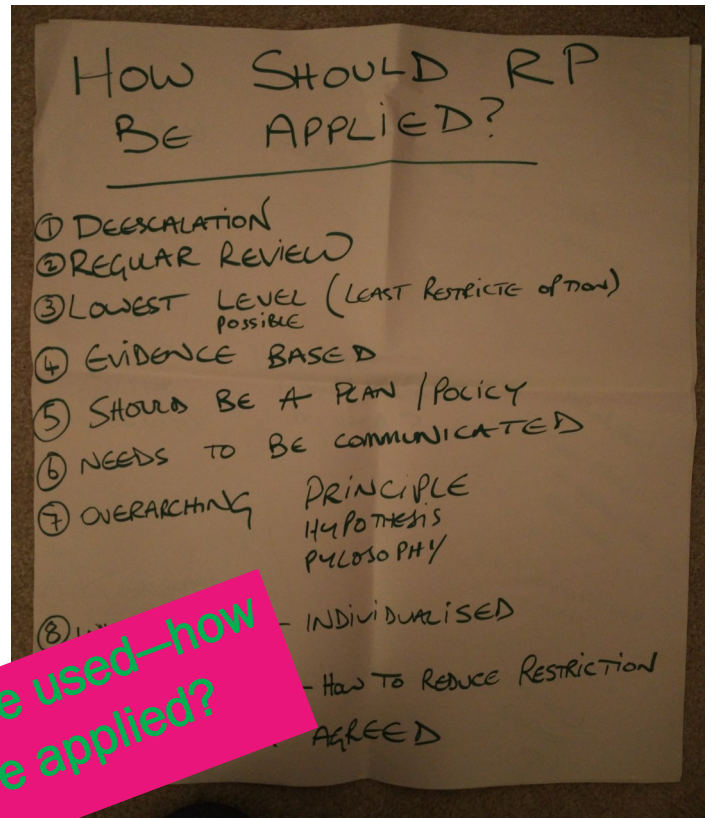 HOW SHOULD RP
BE APPLIED?
① DEESCALATION
② REGULAR REVIEW
③ LOWEST LEVEL (LEAST RESTRICTE OPTION)
POSSIBLE
④ EVIDENCE BASED
⑤ SHOULD BE A PLAN / POLICY
⑥ NEEDS TO BE COMMUNICATED
⑦ OVERARCHING PRINCIPLE
HYPOTHESIS
PYLOSOPHY
⑧ - INDIVIDUALISED
- HOW TO REDUCE RESTRICTION
AGREED
e used—how
e applied?